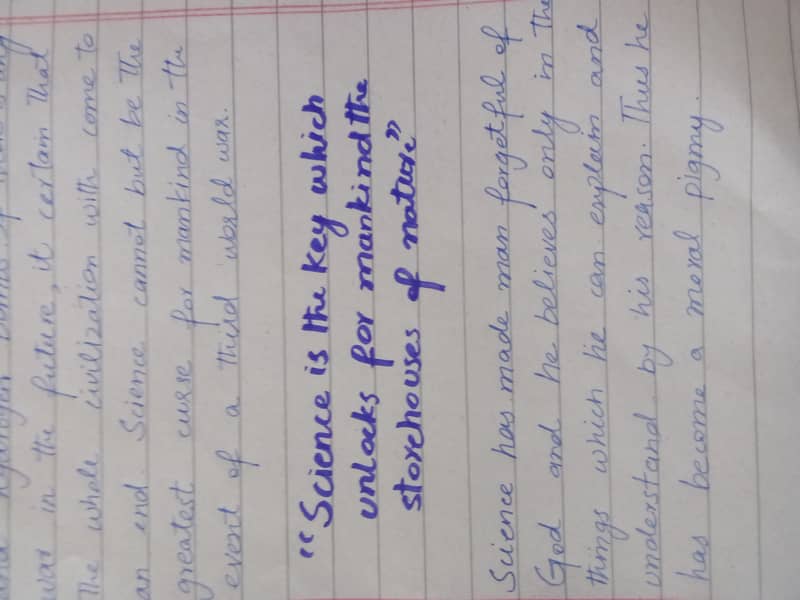 and hydrogen bombs. If there is any
war in the future, it certain that
The whole civilization with come to
an end. Science cannot but be the
greatest curse for mankind in the
event of a third world war.
"Science is the key which
unlocks for mankind the
storehouses of nature"
Science has made man forgetful of
God and he believes only in the
things which he can explain and
understand by his reason. Thus he
has become a moral pigmy.